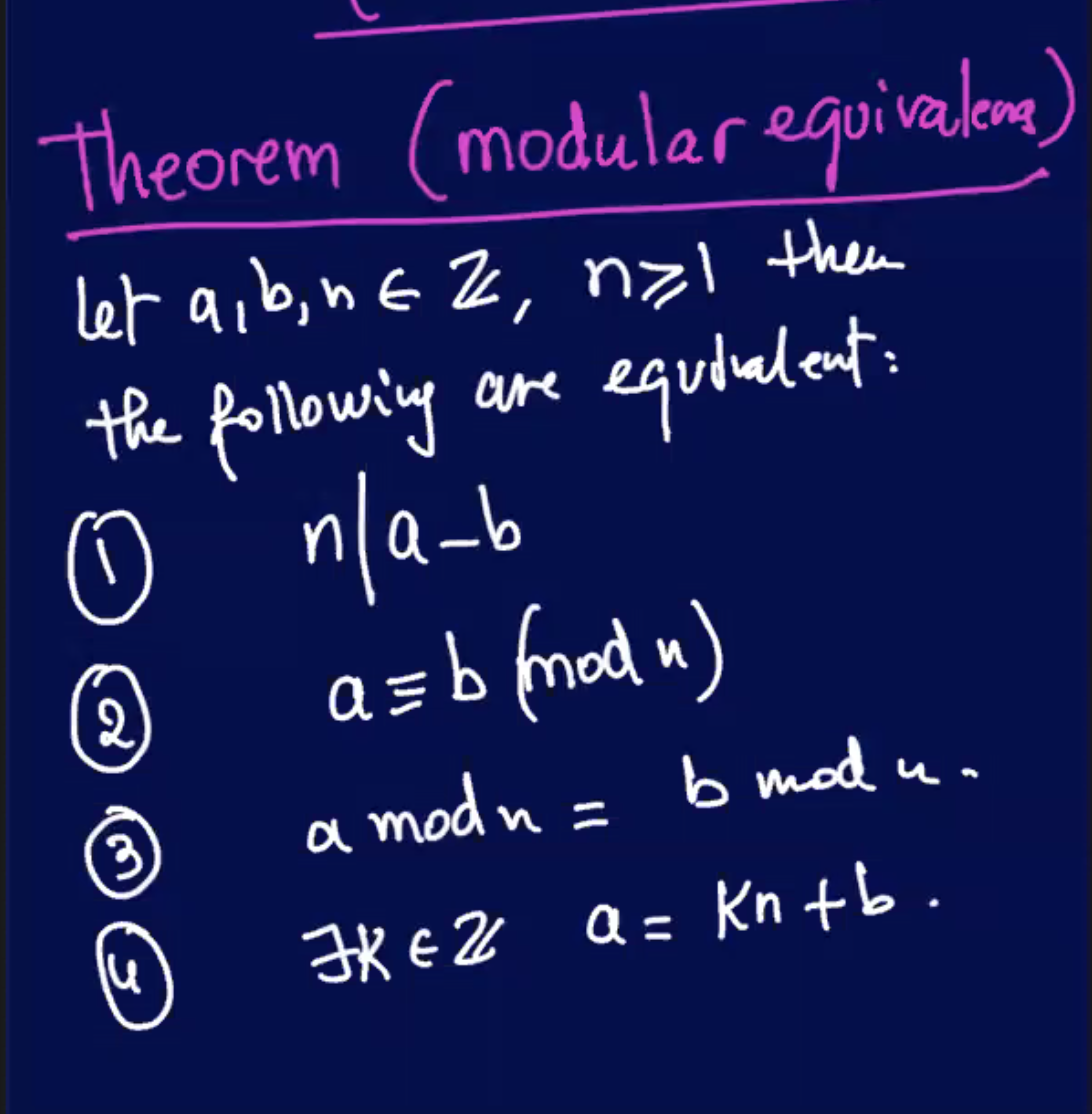 Theorem (modular equivalence)
let a, b, n ∈ ℤ, n ⩾ 1 then
the following are equivalent:
① n | a - b
② a ≡ b (mod n)
③ a mod n = b mod n.
④ ∃k ∈ ℤ a = kn + b.